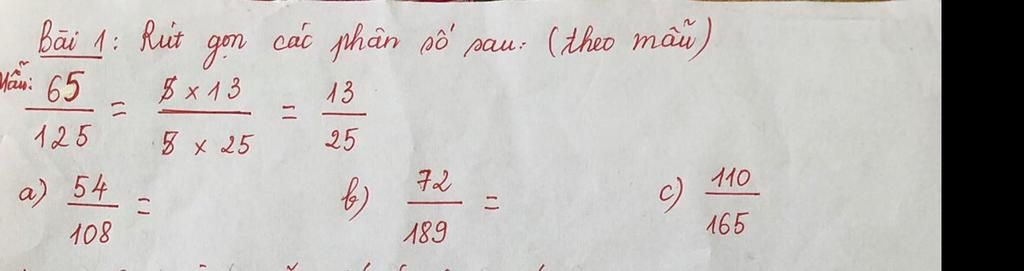 Bài 1: Rút gọn các phân số sau: (theo mẫu)
Mẫu: 65/125 = 5 x 13/5 x 25 = 13/25
a) 54/108 = b) 72/189 = c) 110/165